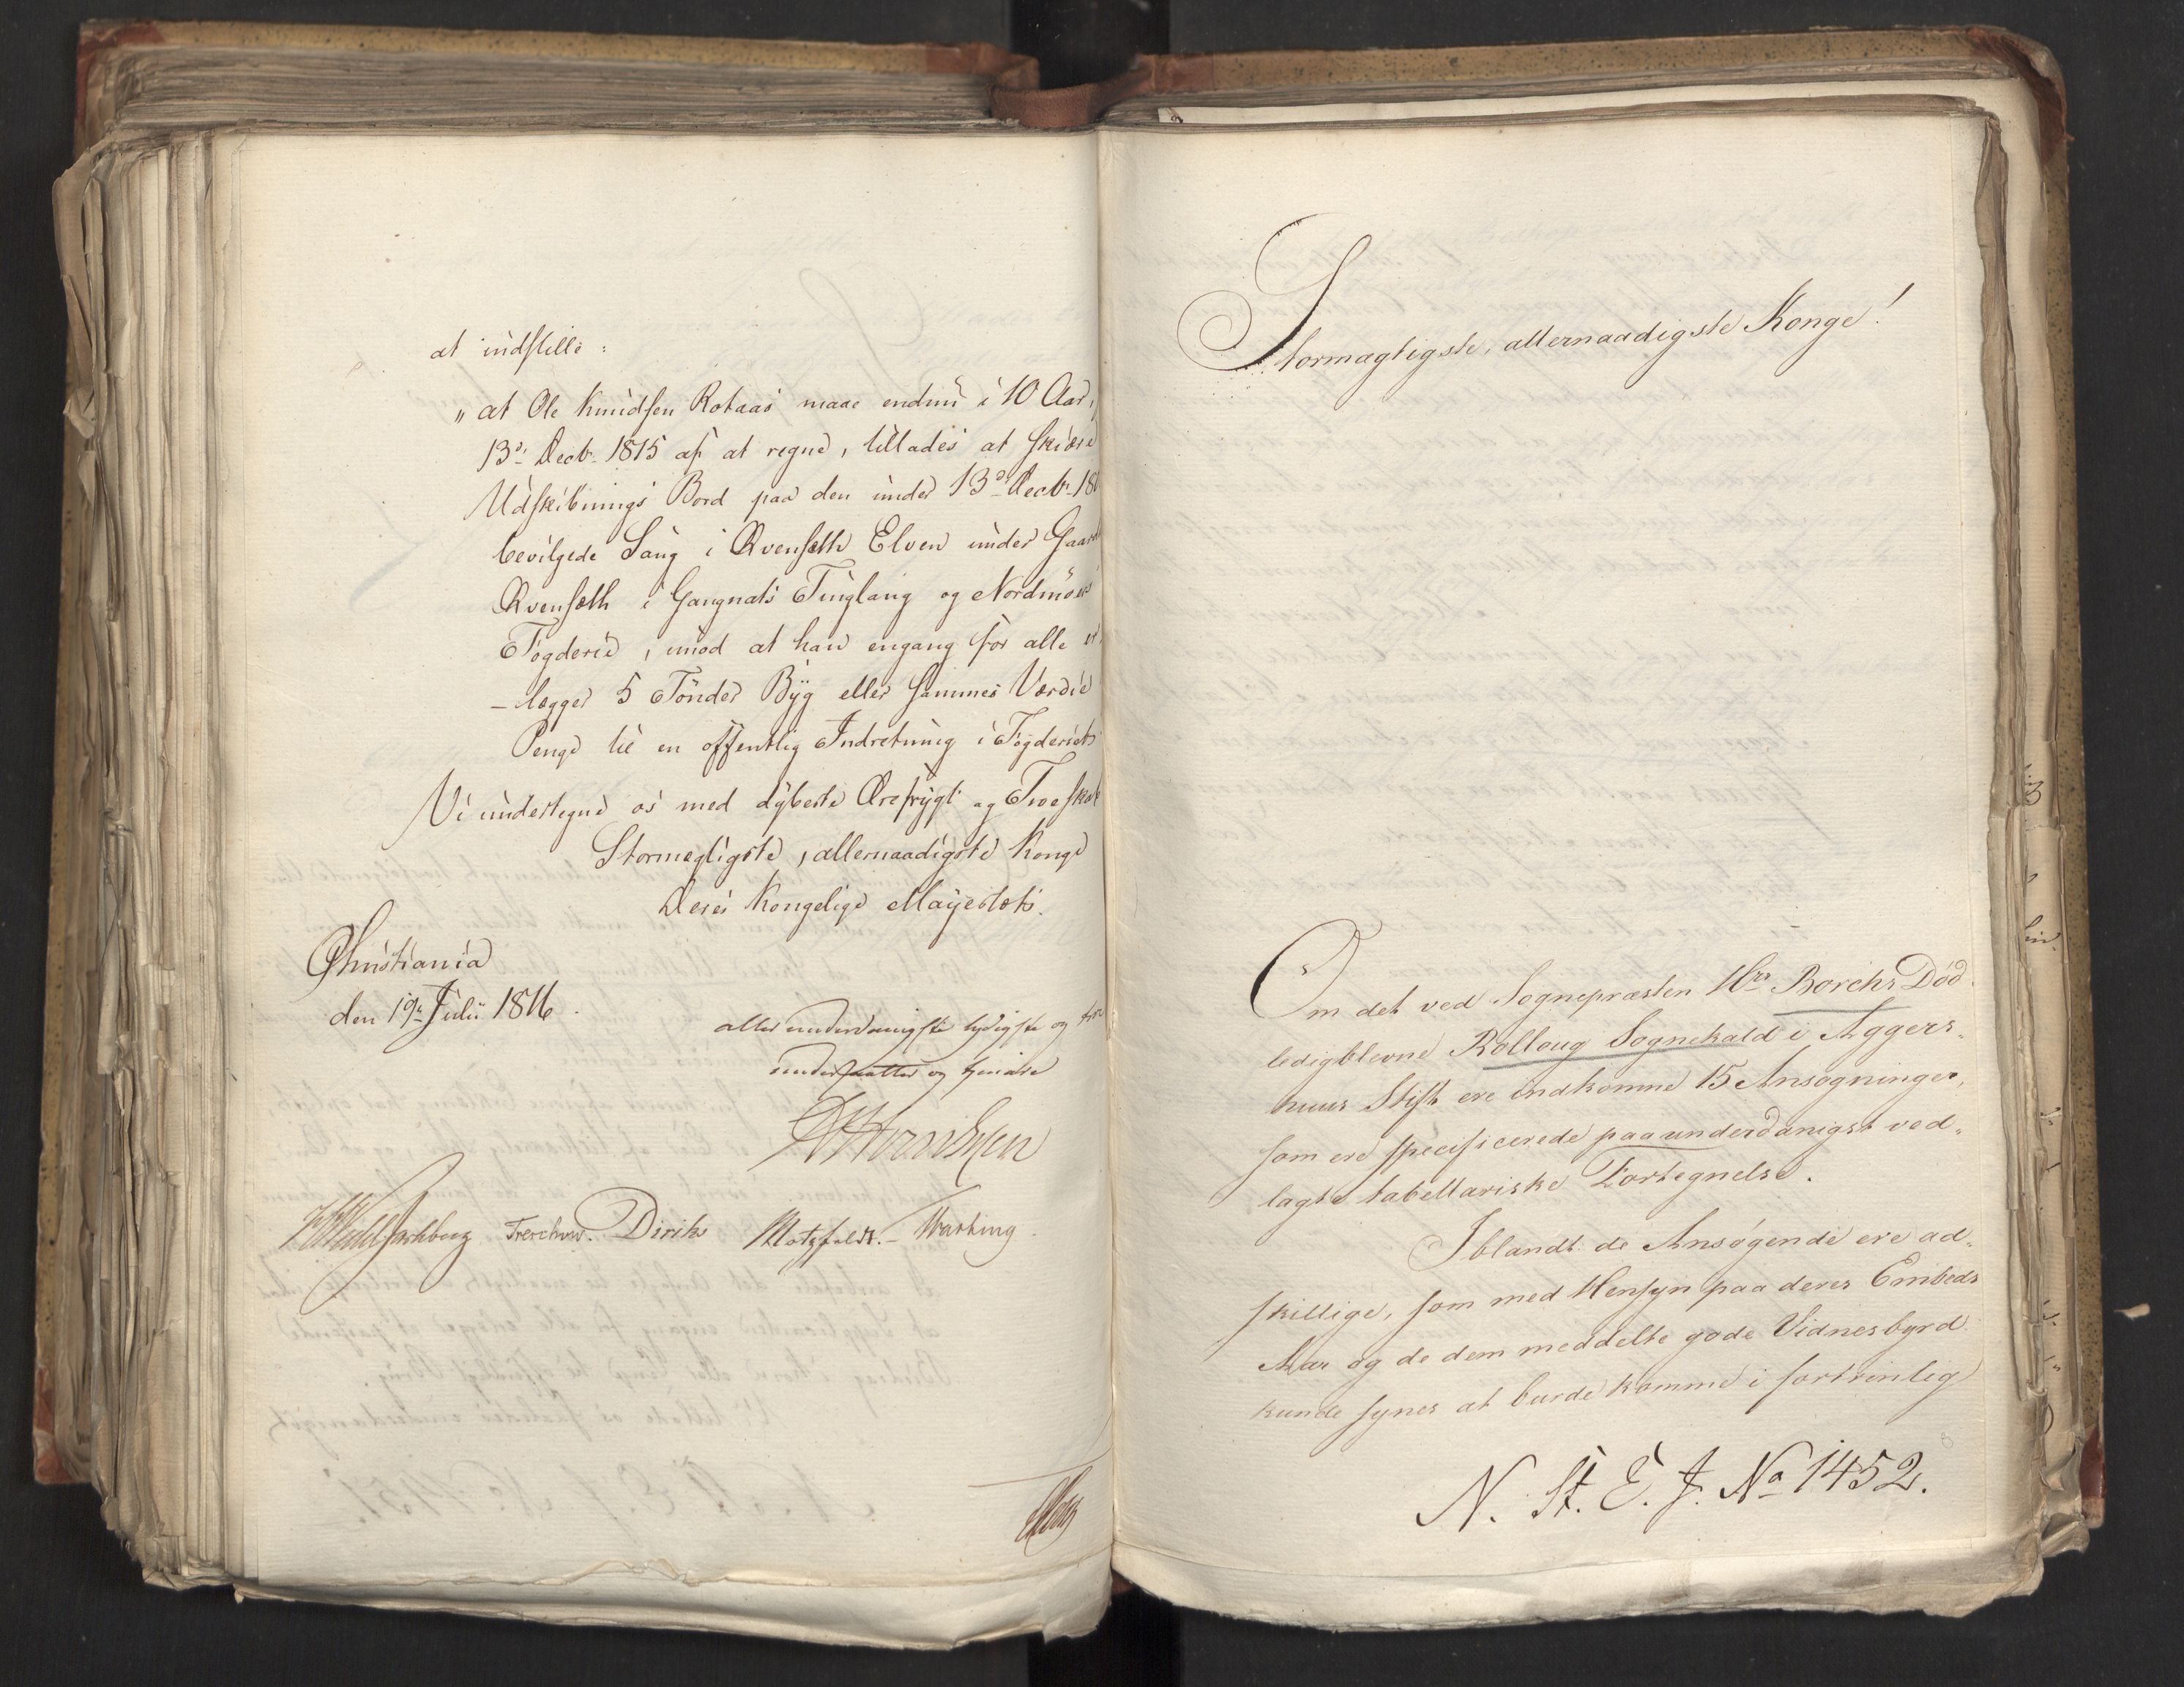 at indstille:
„at Ole Knudsen Rotaas maae endnu i 10 Aar,
13de Decbr 1815 af at regne, tillades at skiære
Udskibnings Bord paa den under 13de Decbr 18
bevilgede Saug i Qvensæth Elven under Gaard
Qvensæth i Gangnats Tinglaug og Nordmöers
Fogderie, mod at han engang for alle er
-lægger 5 Tönder Byg eller sammes Værdie
Penge til en offentlig Indretning i Fogderiet
Vi undertegne os med dybeste Ærefrygt og Troeskab
Stormægtigste, allernaadigste Konge
Deres Kongelige Mayestæts.
Christiania
den 19de Julii 1816.
allerunderdanigste lydigste og tro
undersaatter og tjenere
Treschow. Diriks Motzfeldt. Wasting
Stormægtigste, allernaadigste Konge!
Om det ved Sognepræsten Hrr Borchs Død
ledigblevne Rolloug Sognekald i Aggers-
huus Stift ere indkomne 15 Ansøgninger,
som ere specificerede paa underdanigst ved-
lagte tabellariske Fortegnelse.
Iblandt de Ansøgende ere ad-
skillige, som med Hensyn paa deres Embeds
Aar og de dem meddelte gode Vidnesbyrd
kunde synes at burde komme i fortrinlig
N. St. E. J. No 1452.